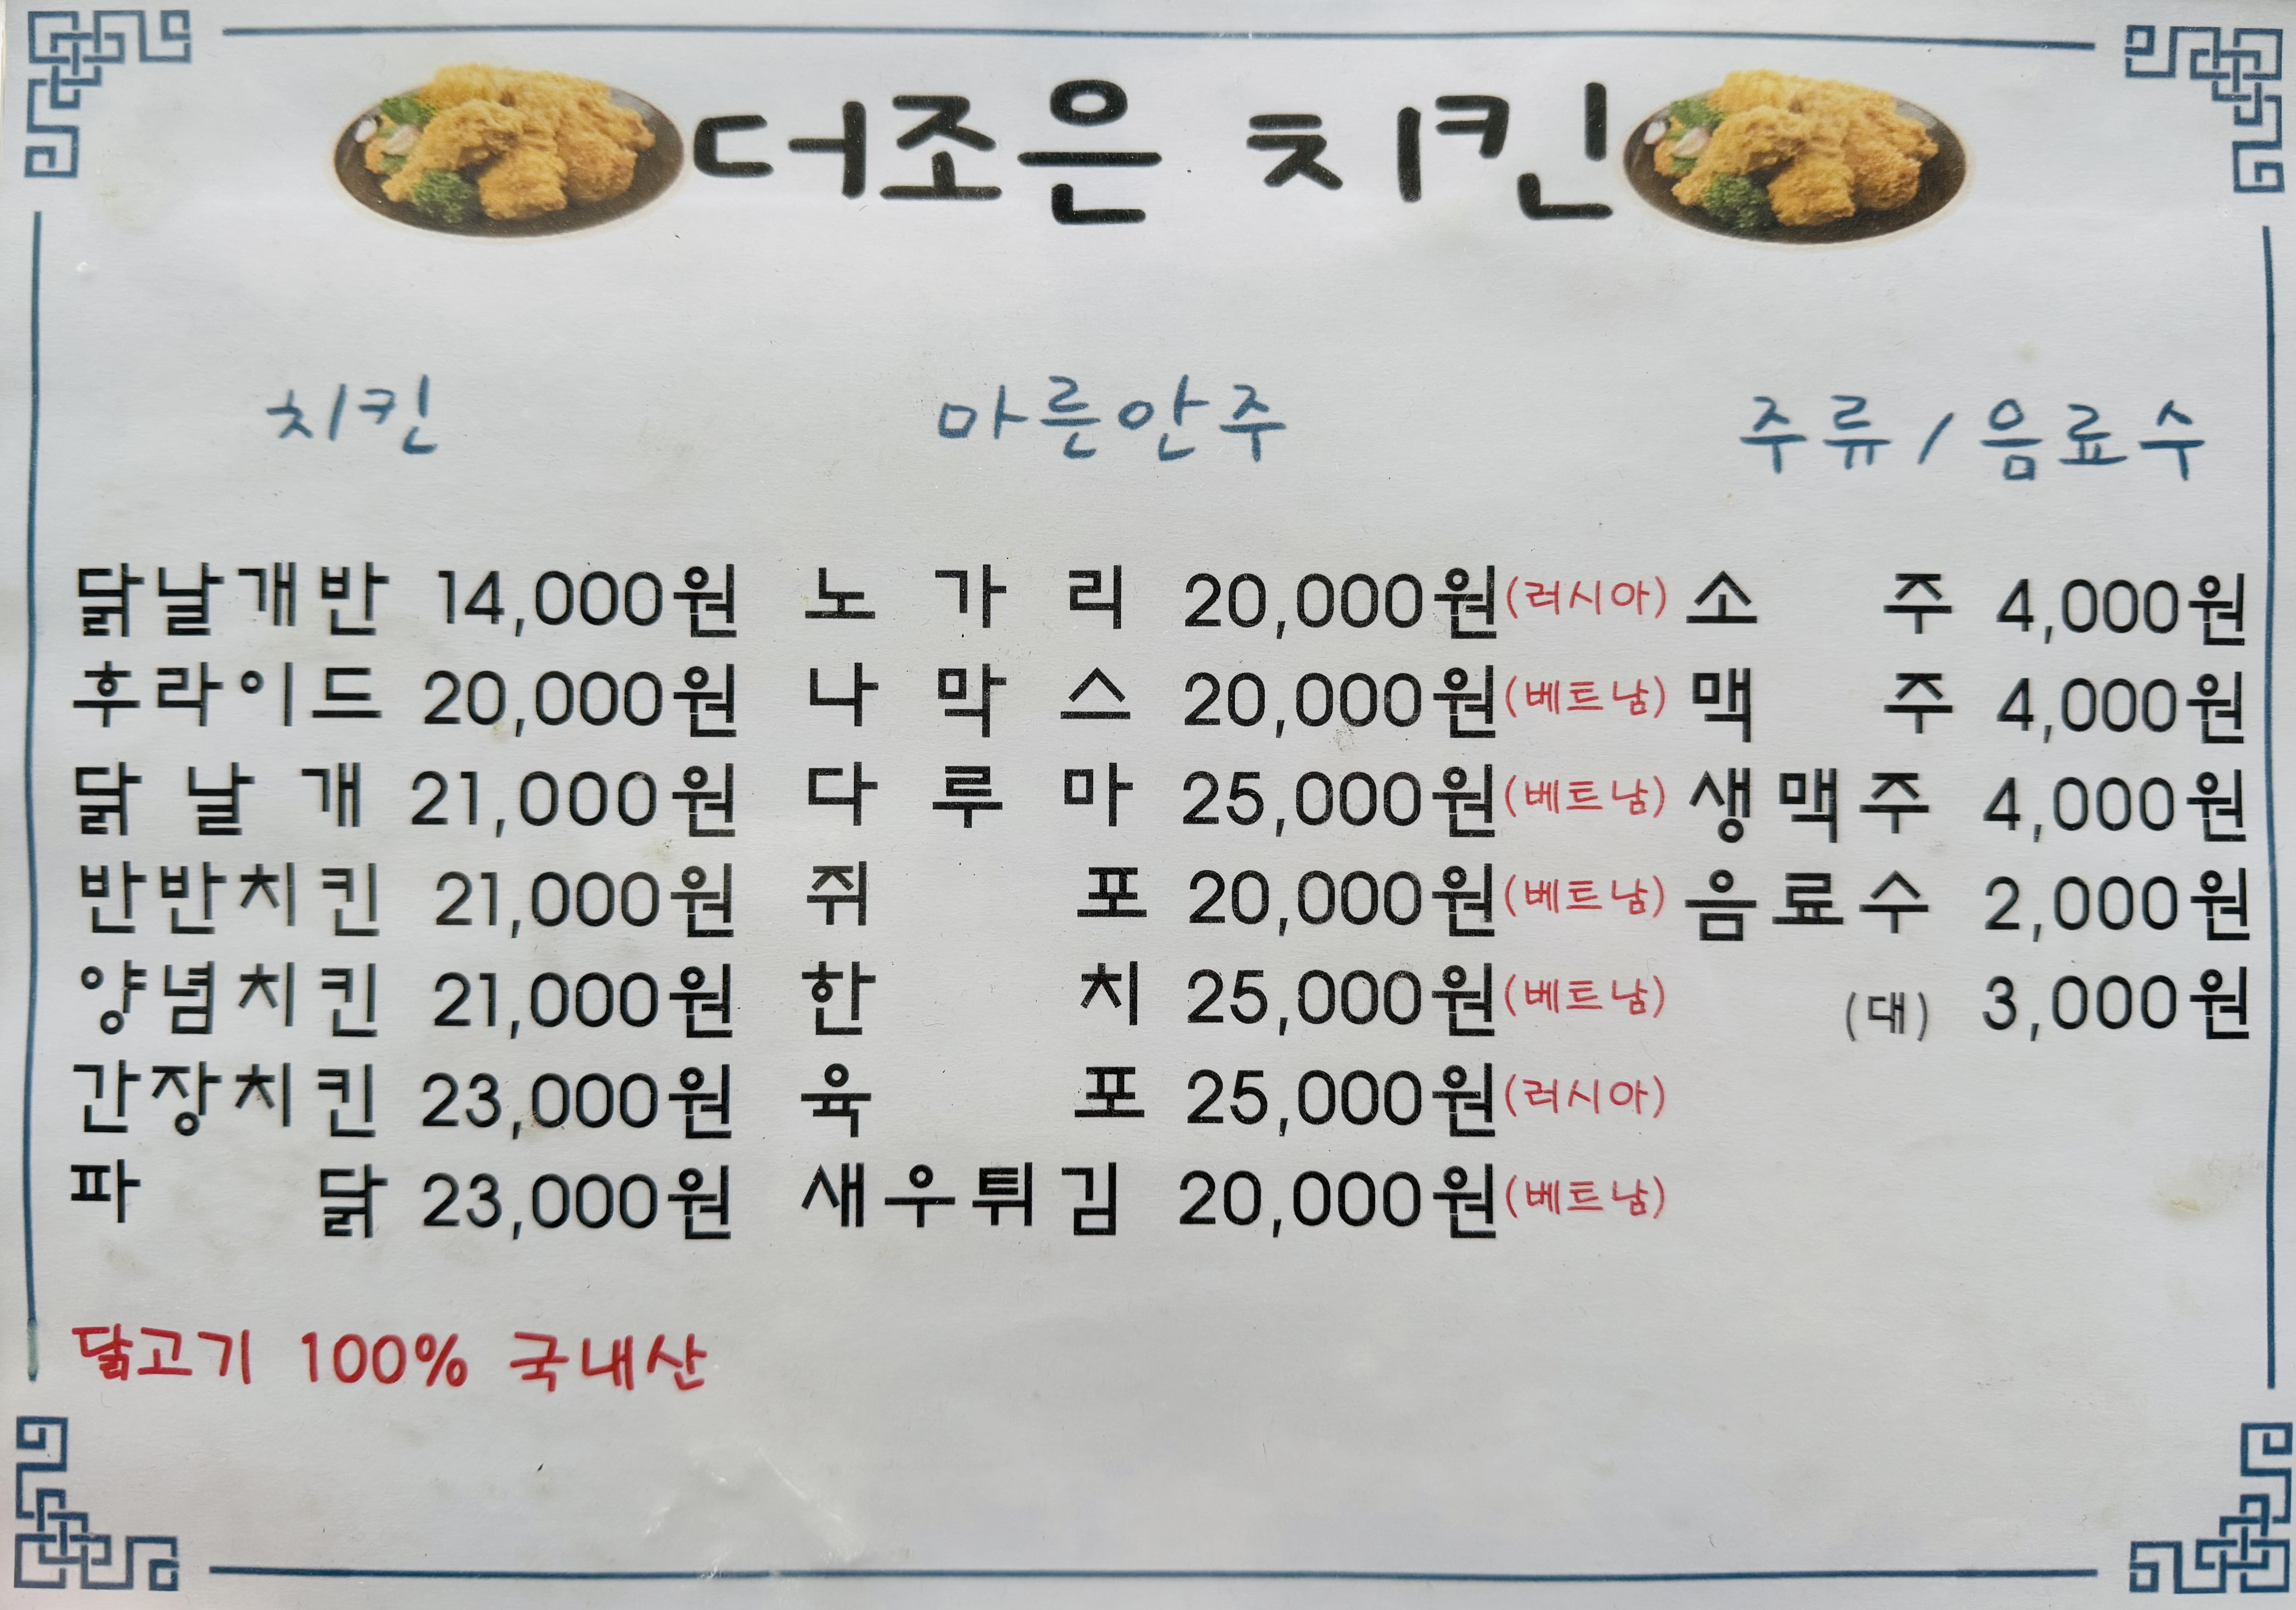 더조은 치킨
치킨 마른안주 주류/음료수
닭날개반 14,000원 노가리 20,000원(러시아) 소주 4,000원
후라이드 20,000원 나막스 20,000원(베트남) 맥주 4,000원
닭날개 21,000원 다루마 25,000원(베트남) 생맥주 4,000원
반반치킨 21,000원 쥐포 20,000원(베트남) 음료수 2,000원
양념치킨 21,000원 한치 25,000원(베트남) (대) 3,000원
간장치킨 23,000원 육포 25,000원(러시아)
파닭 23,000원 새우튀김 20,000원(베트남)
닭고기 100% 국내산